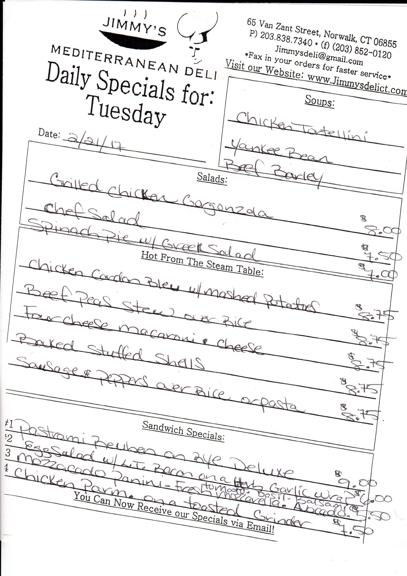 JIMMY'S
MEDITERRANEAN DELI
65 Van Zant Street, Norwalk, CT 06855
P) 203.838.7340 • (f) (203) 852-0120
Jimmysdeli@gmail.com
•Fax in your orders for faster service•
Visit our Website: www.Jimmysdelict.com
Daily Specials for:
Tuesday
Date: 2/21/17
Soups:
Chicken Tortellini
Yankee Bean
Beef Barley
Salads:
Grilled Chicken Gorgonzola $8.00
Chef Salad $7.50
Spinach Pie w/ Greek Salad $7.00
Hot From The Steam Table:
Chicken Cordon Bleu w/ mashed Potatoes $8.75
Beef Peas Stew over Rice $8.75
Four cheese macaroni & cheese $8.75
Baked Stuffed Shells $8.75
Sausage & Peppers over Rice or pasta $8.75
Sandwich Specials:
#1 Pastrami Reuben on Rye Deluxe $9.00
#2 Egg Salad w/ L.T. Bacon on a Garlic wrap $6.00
3 Mozzacado Panini - Fresh Mozzarella. Avocado. Tomato. Basil. Balsamic $7.50
4 Chicken Parm. on a toasted Grinder $7.50
You Can Now Receive our Specials via Email!